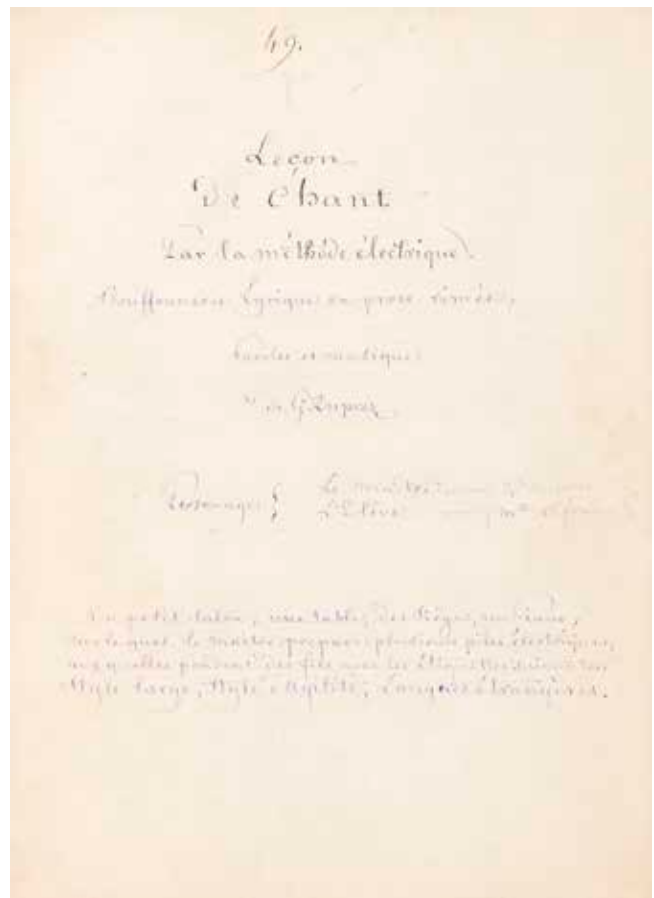 49.
Leçon
De Chant
Par la méthode électrique.
Bouffonnerie Lyrique en prose rimée,
Paroles et musique
de G. Duprez
Personnages { Le maître
L'Elève
Un petit salon, une table, des sièges, un piano,
sur lequel le maître prépare plusieurs piles électriques,
aux quelles pendent des fils avec les étiquettes suivantes:
Style large, Style d'Agilité, Langues étrangères.